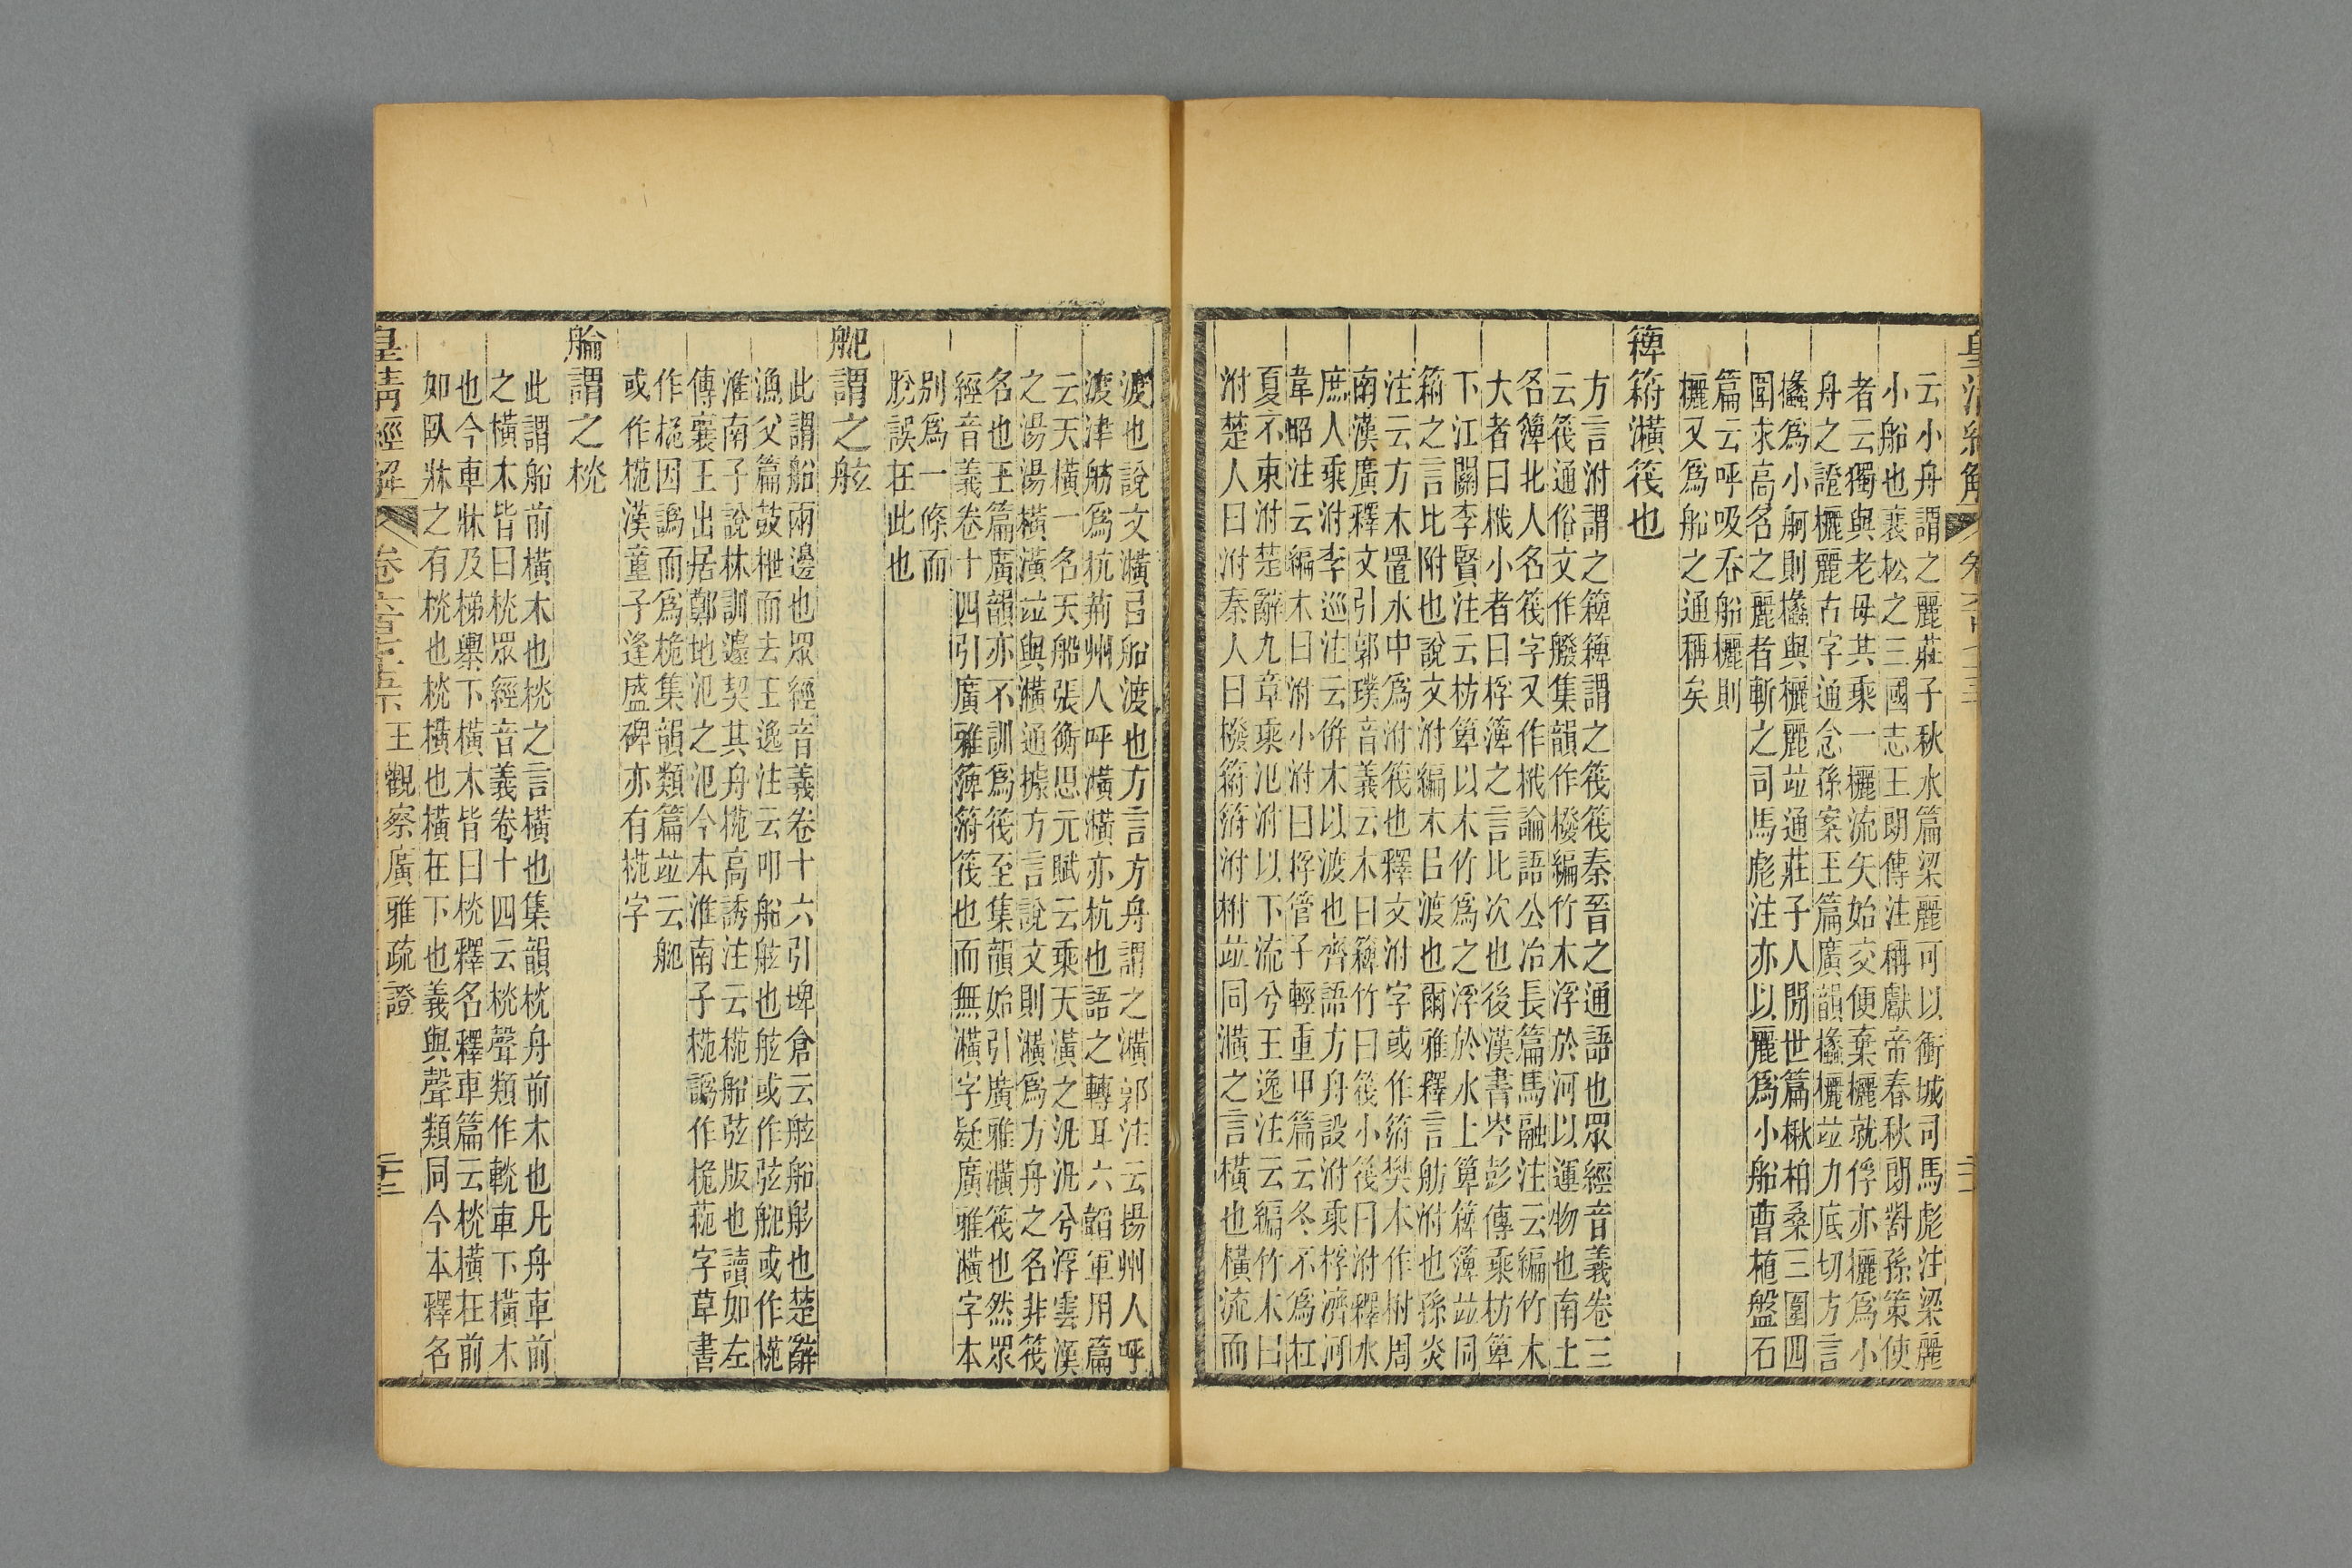 云小舟謂之麗莊子秋水篇梁麗可以衝城司馬彪注梁麗
小船也裴松之三國志王朗傳注稱獻帝春秋朗對孫策使
者云獨與老母其乘一欐流矢始交便棄欐就俘亦欐爲小
舟之證欐麗古字通念孫案玉篇廣韻欚欐竝力底切方言
欚爲小舸則欚與欐麗竝通莊子人閒世篇楸柏桑三圍四
圍求高名之麗者斬之司馬彪注亦以麗爲小船曹植盤石
篇云呼吸吞船欐則
欐又爲船之通稱矣
箄箱潢筏也
方言泭謂之箄箄謂之筏筏秦晉之通語也眾經音義卷三
云筏通俗文作𦪑集韻作橃編竹木浮於河以運物也南土
名簰北人名筏字又作栰論語公冶長篇馬融注云編竹木
大者曰栰小者曰桴簰之言比次也後漢書岑彭傳乘枋箄
下江關李賢注云枋箄以木竹爲之浮於水上箄簰簰竝同
𥱼之言比附也說文泭編木㠯渡也爾雅釋言舫泭也孫炎
注云方木置水中爲泭筏也釋文泭字或作𥱼樊本作柎周
南漢廣釋文引郭璞音義云木曰簰竹曰筏小筏曰泭釋水
庶人乘泭李巡注云併木以渡也齊語方舟設泭乘桴濟河
韋昭注云編木曰泭小泭曰桴管子輕重甲篇云冬不爲杠
夏不束泭楚辭九章乘氾泭以下流兮王逸注云編竹木曰
泭楚人曰泭秦人曰橃𥱼𥱼泭柎竝同潢之言橫也橫流而
渡也說文潢㠯船渡也方言方舟謂之潢郭注云揚州人呼
渡津舫爲杭荊州人呼潢潢亦杭也語之轉耳六韜軍用篇
云天橫一名天船張衡思元賦云乘天潢之汎汎兮浮雲漢
之湯湯橫潢竝與潢通據方言說文則潢爲方舟之名非筏
名也玉篇廣韻亦不訓爲筏至集韻始引廣雅潢筏也然眾
經音義卷十四引廣雅簰𥱼筏也而無潢字疑廣雅潢字本
別爲一條而
脫誤在此也
舥謂之舷
此謂船兩邊也眾經音義卷十六引埤倉云舷船舷也楚辭
漁父篇鼓枻而去王逸注云叩船舷也舷或作弦舥或作㭸
淮南子說林訓遽契其舟㭸高誘注云㭸船弦版也讀如左
傳襄王出居鄭地氾之氾今本淮南子㭸譌作桅㭸字草書
作桅因譌而爲桅集韻類篇竝云舥
或作㭸漢童子逢盛碑亦有㭸字
艑謂之桄
此謂船前橫木也桄之言橫也集韻桄舟前木也凡舟車前
之橫木皆曰桄眾經音義卷十四云桄聲類作輄車下橫木
也今車牀及梯轝下橫木皆曰桄釋名釋車篇云桄橫在前
如臥牀之有桄也桄橫也橫在下也義與聲類同今本釋名
皇淸經解 卷六百七十五下 王觀察廣雅疏證